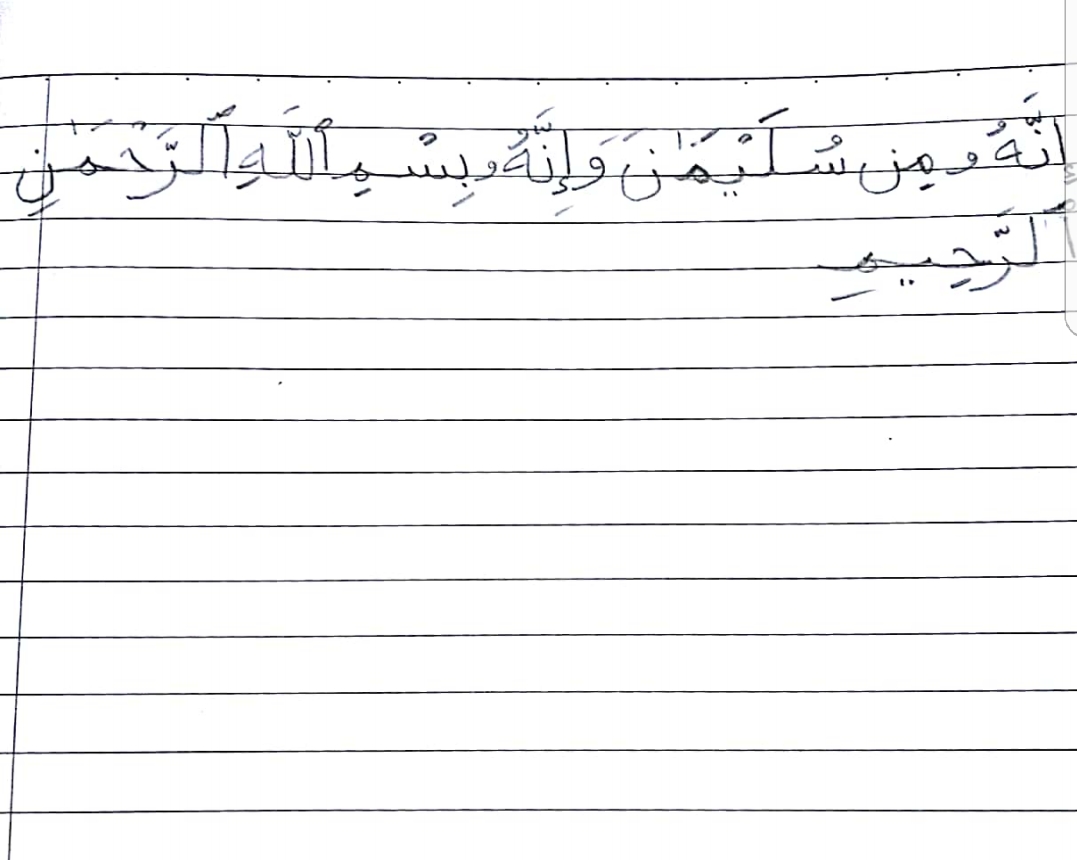 إِنَّهُۥ مِن سُلَيْمَٰنَ وَإِنَّهُۥ بِسْمِ ٱللَّهِ ٱلرَّحْمَٰنِ
ٱلرَّحِيمِ